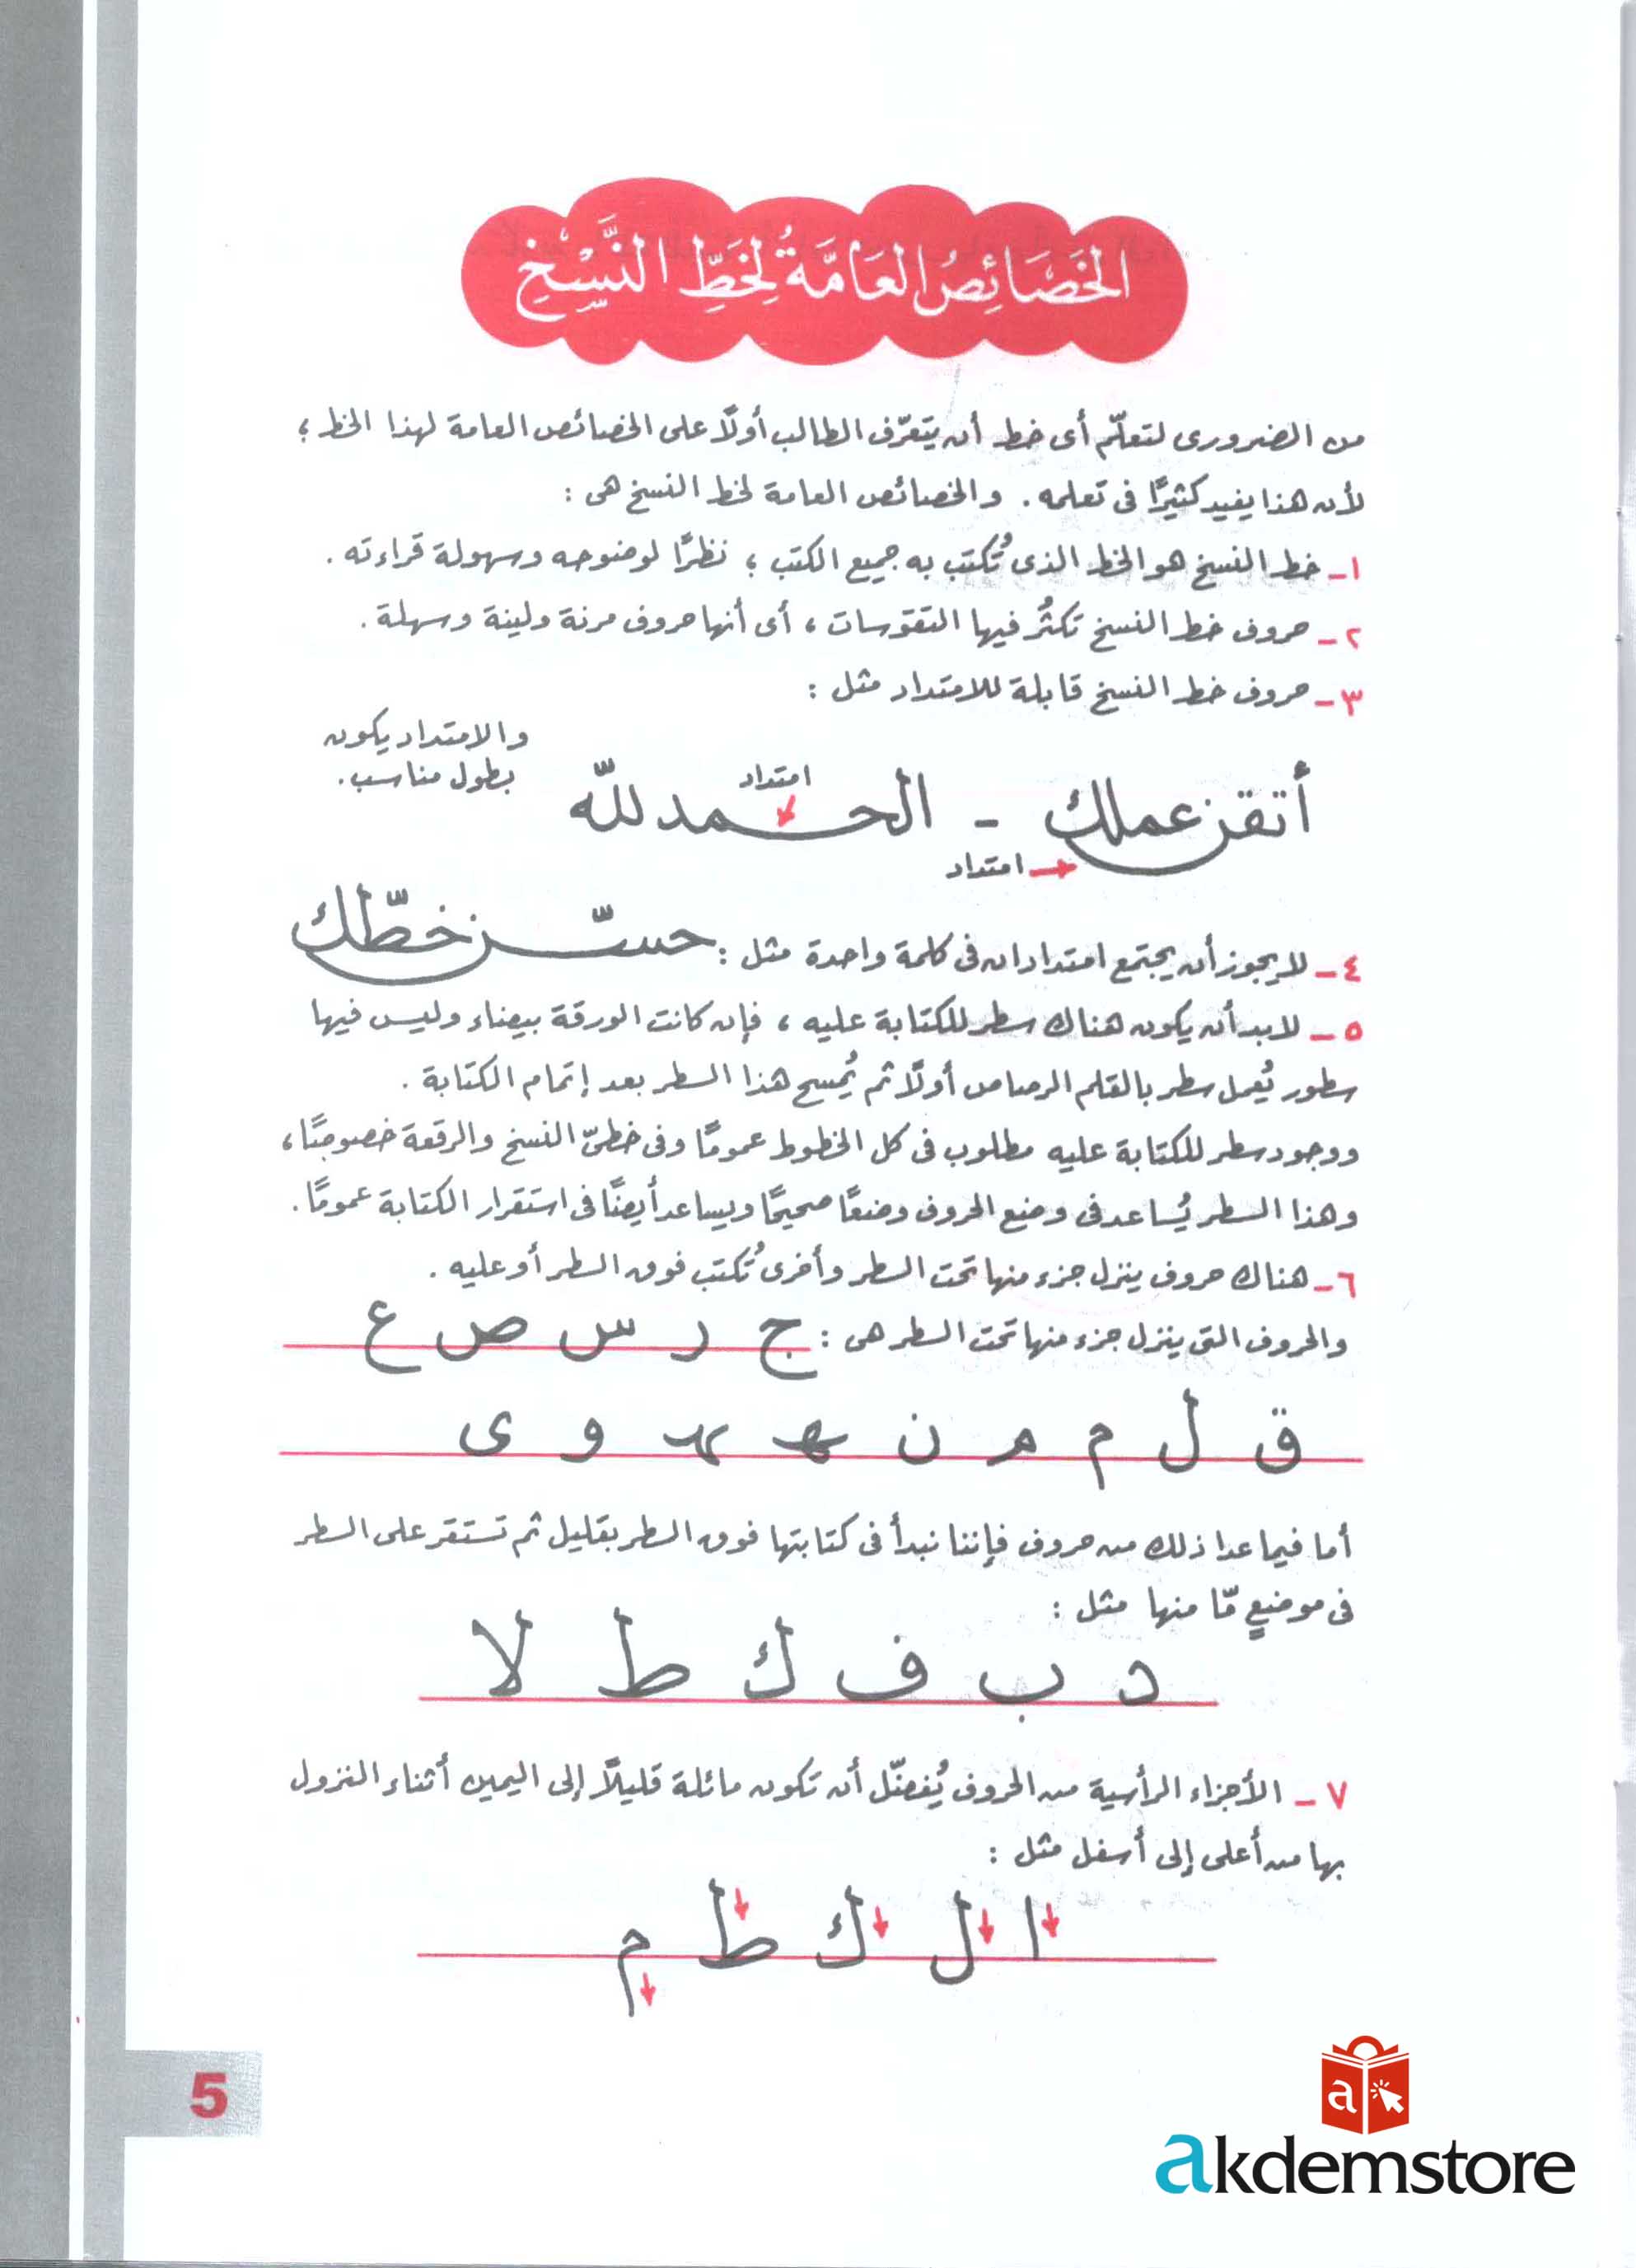 الخَصَائِصُ العَامَّةُ لِخَطِّ النَّسْخِ
من الضرورى لتعلّم أى خط أن يتعرّف الطالب أولًا على الخصائص العامة لهذا الخط ؛
لأن هذا يفيد كثيرًا فى تعلمه . والخصائص العامة لخط النسخ هى :
١- خط النسخ هو الخط الذى تُكتب به جميع الكتب ؛ نظرًا لوضوحه وسهولة قراءته .
٢- حروف خط النسخ تكثُر فيها التقوسات ، أى أنها حروف مرنة ولينة وسهلة .
٣- حروف خط النسخ قابلة للامتداد مثل :
والامتداد يكون
بطول مناسب .
امتداد
أتقن عملك - الحمد لله
امتداد
٤- لا يجوز أن يجتمع امتدادان فى كلمة واحدة مثل : حسّن خطّك
٥- لابد أن يكون هناك سطر للكتابة عليه ، فإن كانت الورقة بيضاء وليس فيها
سطور يُعمل سطر بالقلم الرصاص أولًا ثم يُمسح هذا السطر بعد إتمام الكتابة .
ووجود سطر للكتابة عليه مطلوب فى كل الخطوط عمومًا وفى خطىّ النسخ والرقعة خصوصًا ،
وهذا السطر يُساعد فى وضع الحروف وضعًا صحيحًا ويساعد أيضًا فى استقرار الكتابة عمومًا .
٦- هناك حروف ينزل جزء منها تحت السطر وأخرى تُكتب فوق السطر أو عليه .
والحروف التى ينزل جزء منها تحت السطر هى : ج ر س ص ع
ق ل م م ن ه ه و ى
أما فيما عدا ذلك من حروف فإننا نبدأ فى كتابتها فوق السطر بقليل ثم تستقر على السطر
فى موضعٍ مّا منها مثل :
د ب ف ك ط لا
٧- الأجزاء الرأسية من الحروف يُفضّل أن تكون مائلة قليلًا إلى اليمين أثناء النزول
بها من أعلى إلى أسفل مثل :
ا ل ك ط م
5
a
akdemstore